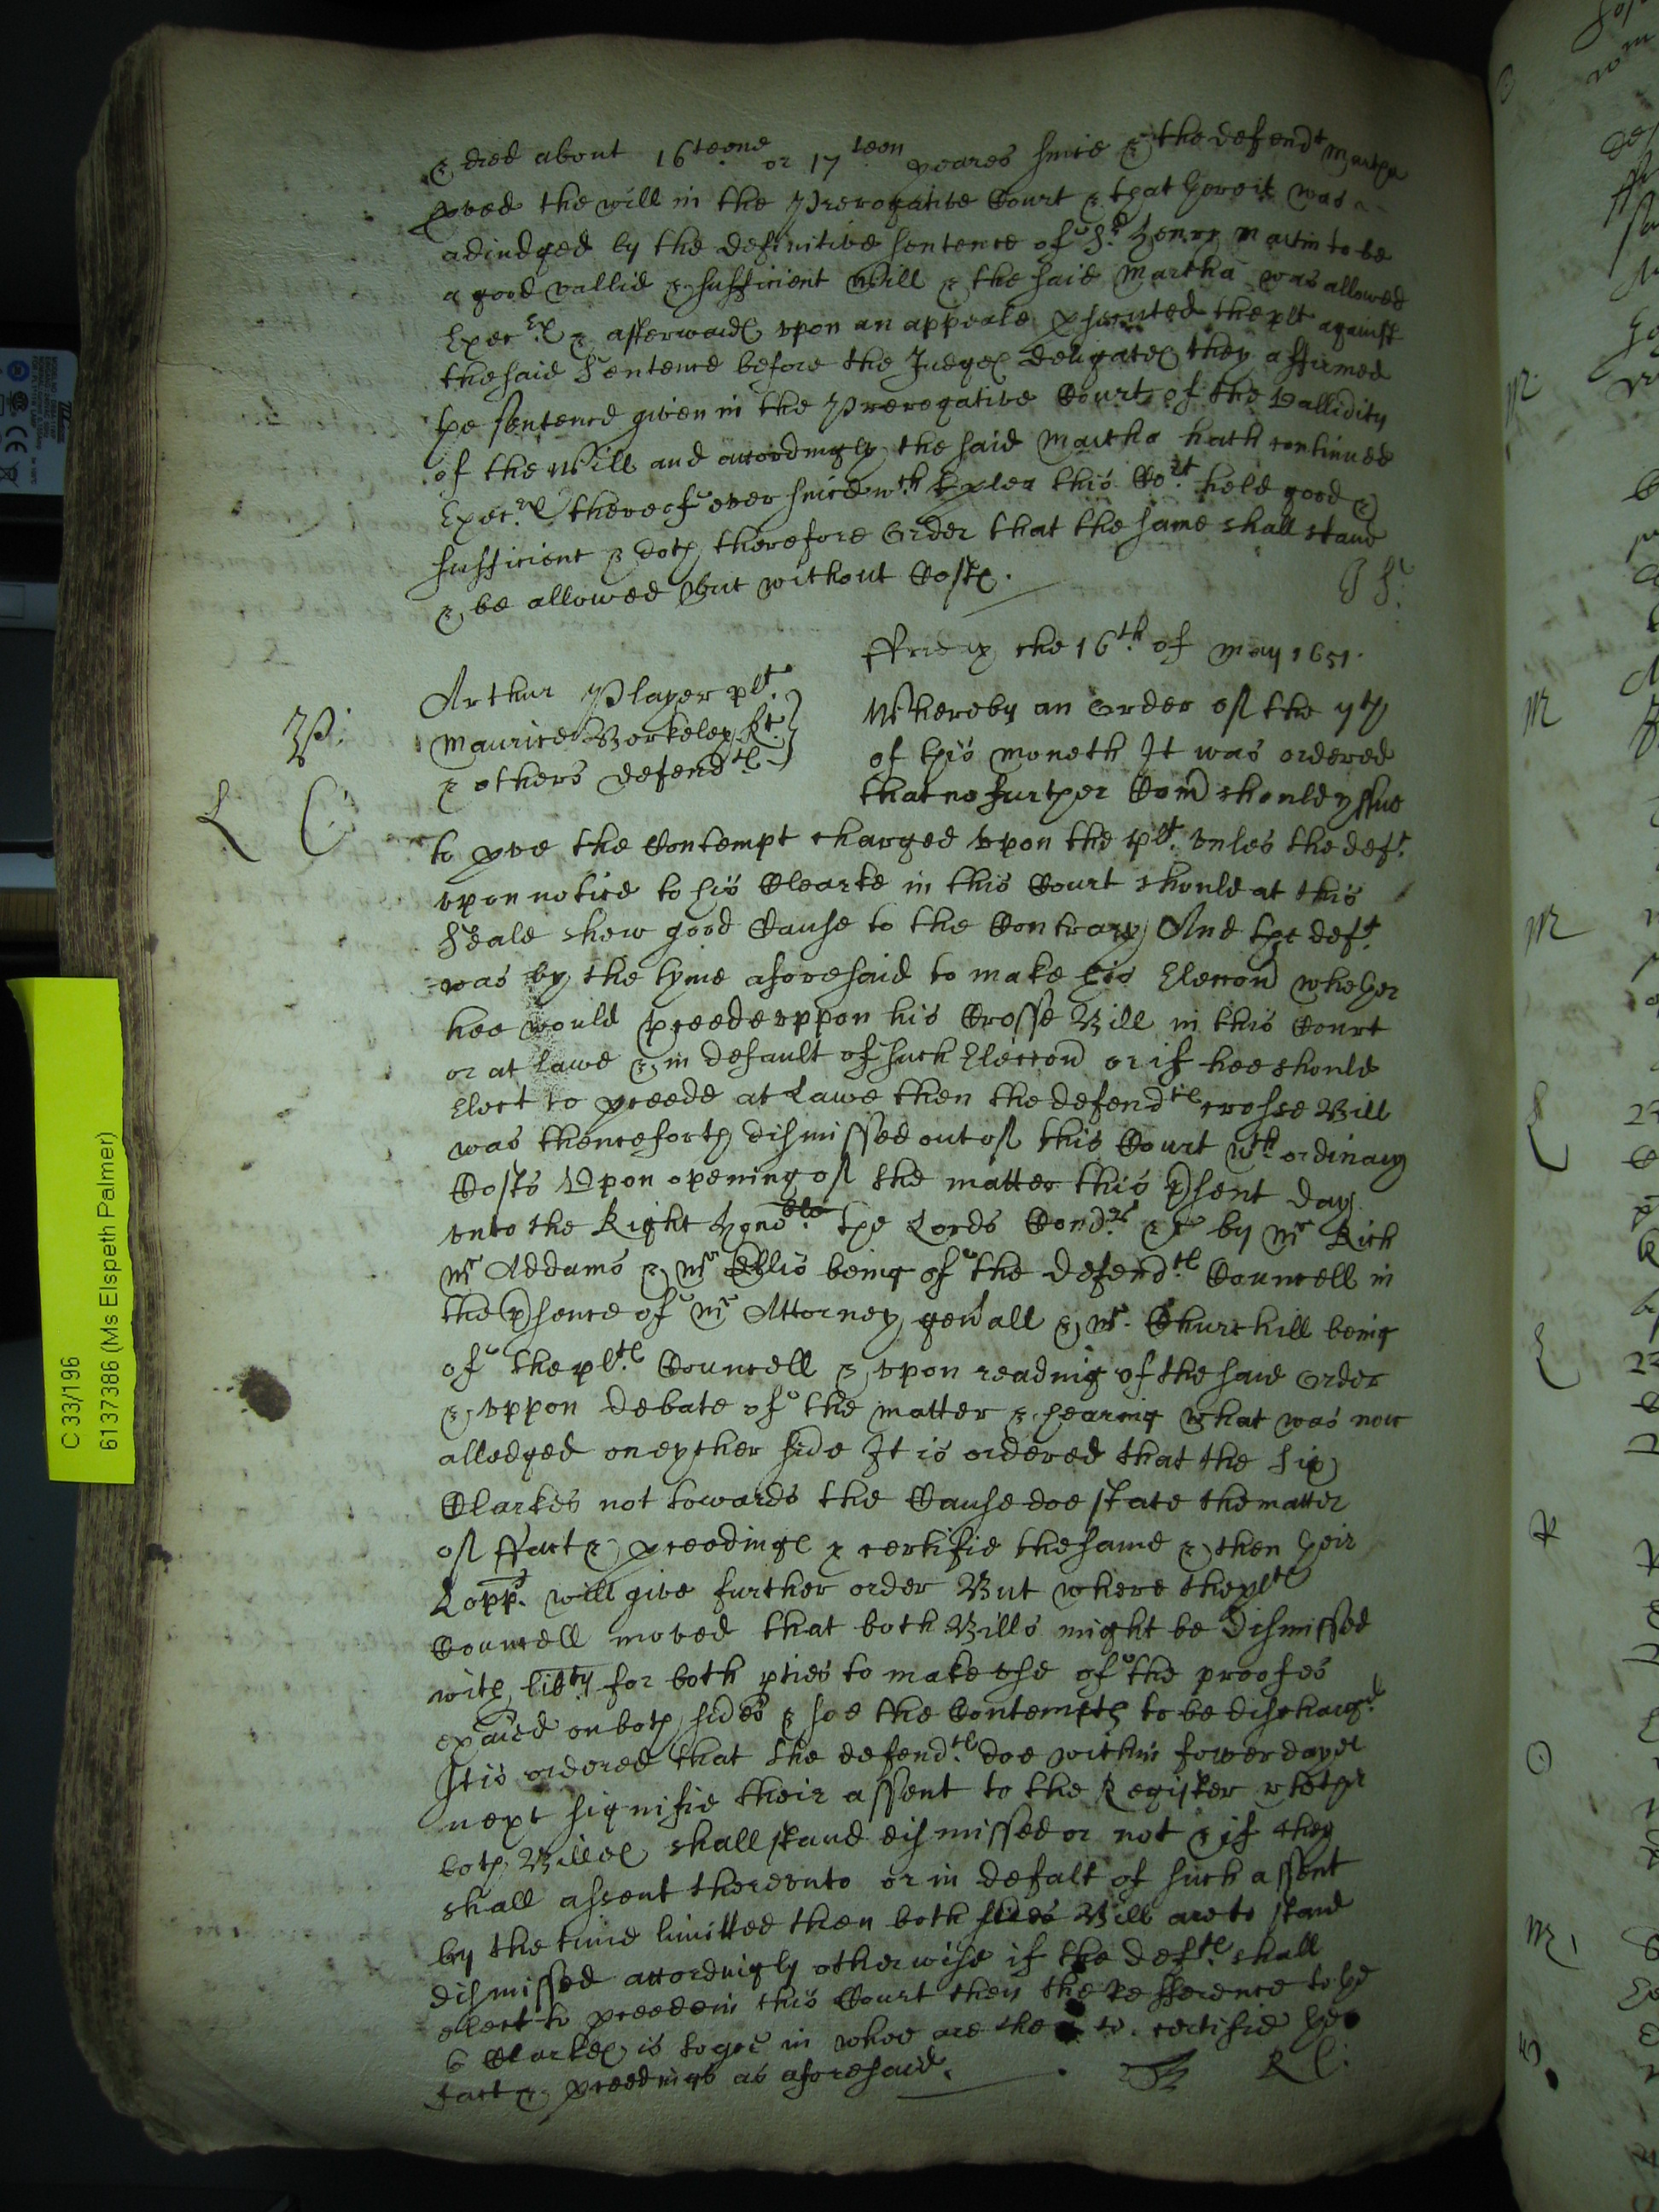 & died about 16teene or 17teen yeares since & the defendt Martha
pved the will in the Prerogative Court & that hereit was
adiudged by the definitive sentence of Sr Henry Martin to be
a good vallid & sufficient Will & the said Martha was allowed
Execrx & afterwards vpon an appeale psecuted the plt against
the said Sentence before the Judges deligates they affirmed
the sentence given in the Prerogative Court of the Vallidity
of the Will and accordingly the said Martha hath continued
Execrx thereof ever since wch plea this Cort held good &
sufficient & doth therefore Order that the same shall stand
& be allowed but without Costs.
ffriday the 16th of May 1651.
Arthur Player plt.
Maurice Berkeley Kt.
& others defendts
P:
L C
Whereby an Order of the 7th
of this moneth It was ordered
that no further Com should yssue
to pve the Contempt charged vpon the plt. vnles the deft.
vpon notice to his Clearke in this Court should at this
Seale shew good Cause to the Contrary And the deft.
was by the tyme aforesaid to make his Eleccon whether
hee would pceede vppon his Crosse Bill in this Court
or at Lawe & in default of such Eleccon or if hee should
Elect to pceede at Lawe then the defendts crosse Bill
was thenceforth dismissed out of this Court wth ordinary
Costs Vpon opening of the matter this psent day
vnto the Right Honoble the Lords Comdrs &c by Mr Rich
Mr Addams & Mr Ellis being of the defendts Councell in
the psence of Mr Attorney genall & Mr. Churchill being
of the plts Councell & vpon reading of the said Order
& vppon debate of the matter & hearing what was now
alledged on eyther side It is ordered that the Six
Clarkes not towards the Cause doe state the matter
of ffact & pceedings & certifie the same & then their
Lopps. will give further order But where the plts
Councell moved that both Bills might be dismissed
with libty for both pties to make vse of the proofes
exaied on both sides & soe the Contempts to be dischargd
It is ordered that the defendts doe within fower dayes
next signifie their assent to the Register whether
both Billes shall stand dismissed or not & if they
shall assent therevnto or in defalt of such assent
by the time limitted then both sides Bill are to stand
dismissed accordingly otherwise if the defts shall
elect to pceede in this Court then the Refference to the
6 Clarkes is to goe in whoe are then to certifie the
fact & pceedings as aforesaid.
R C:
C 33/196
6137386 (Ms Elspeth Palmer)